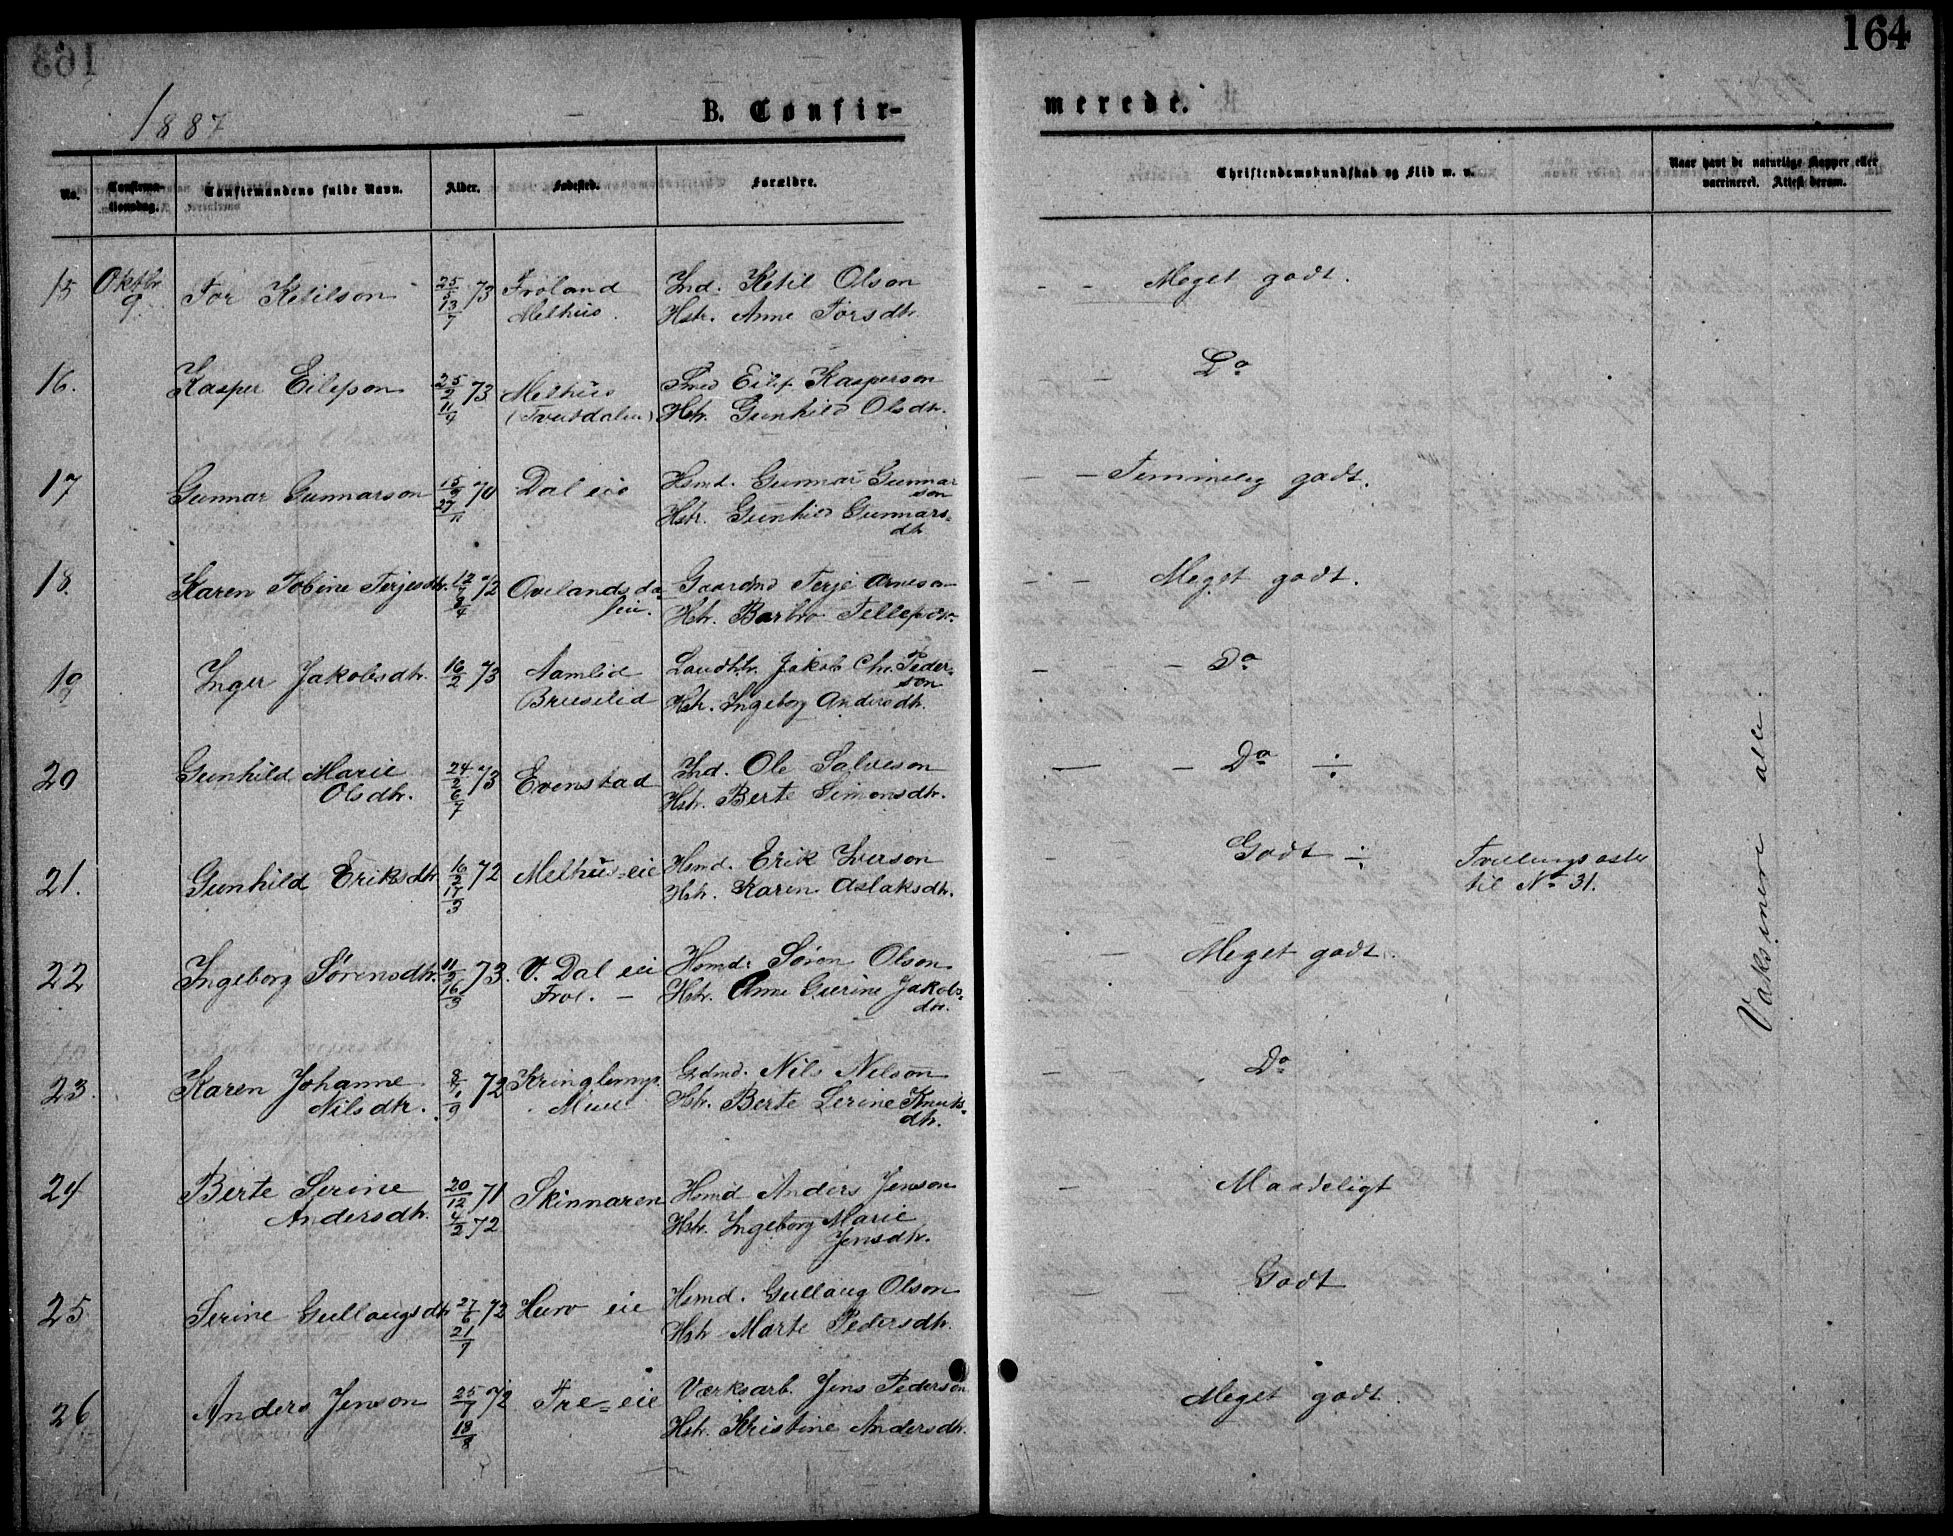 163
164
1887
B. Confir-
merede.
No.
Confirma-
tionsdag.
Confirmandens fulde Navn.
Alder.
Fødested.
Forældre.
Christendomskundskab og Flid m. v.
Naar havt de naturlige Kopper eller
vaccineret. Attest derom.
15 Oktbr Tor Ketilson 25/5 73 Froland Ind. Ketil Olson - - Meget godt.
9. 13/7 Melhus. Hstr. Anne Torsdtr.
16. Kasper Eilefson 25/2 73 Melhus Smed Eilef Kasperson - Do
11/4 (Tveitdalen) Hstr. Gunhild Olsdtr.
17 Gunnar Gunnarson 15/9 70 Dal eie Hsmd. Gunnar Gunnar - - Temmelig godt.
27/11 son
Hstr. Gunhild Gunnars-
dtr
18. Karen Tobine Terjesdtr. 12/2 72 Ovelandsda- Gaardmd Terje Arneson - - Meget godt.
/4 len. Hstr. Barbro Tellefsdtr.
19 Inger Jakobsdtr. 16/2 73 Aamlid Landhtr. Jakob Chr. Peder- - - - Do
son
Bruselid Hstr. Ingeborg Andersdtr.
20 Gunhild Marie 24/2 73 Evenstad Ind. Ole Salveson - - Do ÷
Olsdtr. 6/7 Hstr. Berte Simonsdtr.
21. Gunhild Eriksdtr 16/2 72 Melhus-eie Hsmd. Erik Iverson - - Godt ÷ Tvillingsøster
17/3 Hstr. Karen Aslaksdtr. til No 31.
22 Ingeborg Sørensdtr. 11/2 73. V. Dal eie Hsmd. Søren Olson - Meget godt.
16/3 Frol. - Hstr. Anne Gurine Jakobs-
dtr.
23. Karen Johanne 8/7 72 Kringlemyr Grdmd. Nils Nilson - - Do
Nilsdtr. 1/9 Hstr. Berte Serine Knuts-
dtr.
24 Berte Serine 20/12 71 Skinnaren Hsmd Anders Jenson - Maadeligt
Andersdtr. 4/2 72 Hstr. Ingeborg Marie
Jensdtr.
25 Serine Gullaugsdtr 27/6 72 Hurv eie Hsmd. Gullaug Olson - - Godt
21/7 Hstr Marte Pedersdtr.
26 Anders Jenson 25/7 72 Tre-eie Værksarb. Jens Pederson Meget godt.
18/8 Hstr. Kristine Andersdtr.
Vaksinere alle.